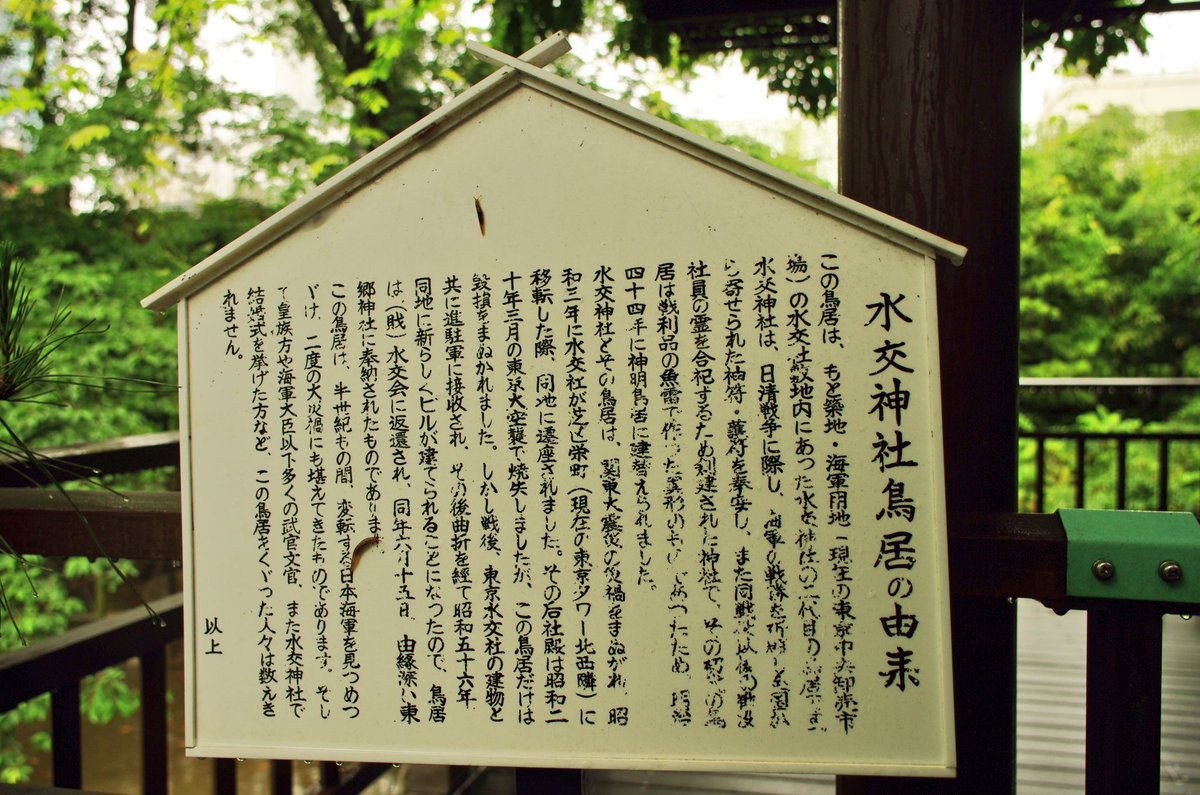 水交神社鳥居の由来
この鳥居は、もと築地・海軍用地(現在の東京中央卸売市
場)の水交社敷地内にあった水交神社の二代目の鳥居です
水交神社は、日清戦争に際し、海軍の戦勝を祈願し全国か
ら寄せられた神符・護符を奉安し、また同戦役以後の戦没
社員の霊を合祀するため創建された神社で、その初代の鳥
居は戦利品の魚雷で作った異形のもの であつたため、明治
四十四年に神明鳥居に建替えられました。
水交神社とその鳥居は、関東大震災の災禍をまぬがれ、昭
和三年に水交社が芝区栄町(現在の東京タワー北西隣)に
移転した際、同地に遷座されました。その后社殿は昭和二
十年三月の東京大空襲で焼失しましたが、この鳥居だけは
毀損をまぬかれました。しかし戦後、東京水交社の建物と
共に進駐軍に接収され、その後曲折を経て昭和五十六年
同地に新らしくビルが建てられることになつたので、鳥居
は、(財)水交会に返還され、同年六月十五日、由縁深い東
郷神社に奉納されたものであります
この鳥居は、半世紀もの間、変転する日本海軍を見つめつ
づけ、二度の大災禍にも堪えてきたものであります。そし
て皇族方や海軍大臣以下多くの武官文官、また水交神社で
結婚式を挙げた方など、この鳥居をくゞった人々は数えき
れません。
以上